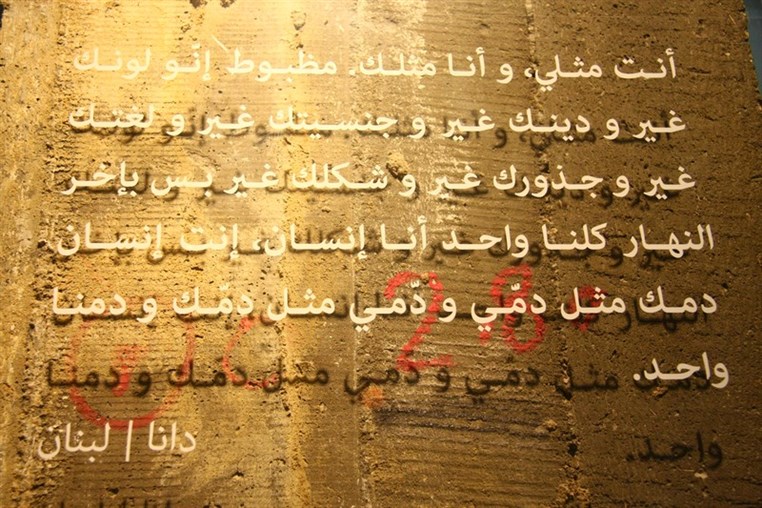 أنت مثلي، و أنا مثلك. مظبوط إنّو لونك
غير و دينك غير و جنسيتك غير و لغتك
غير و جذورك غير و شكلك غير بس بإخر
النهار كلنا واحد أنا إنسان، إنت إنسان
دمك مثل دمّي و دّمي مثل دمّك و دمنا
واحد.
دانا | لبنان
28